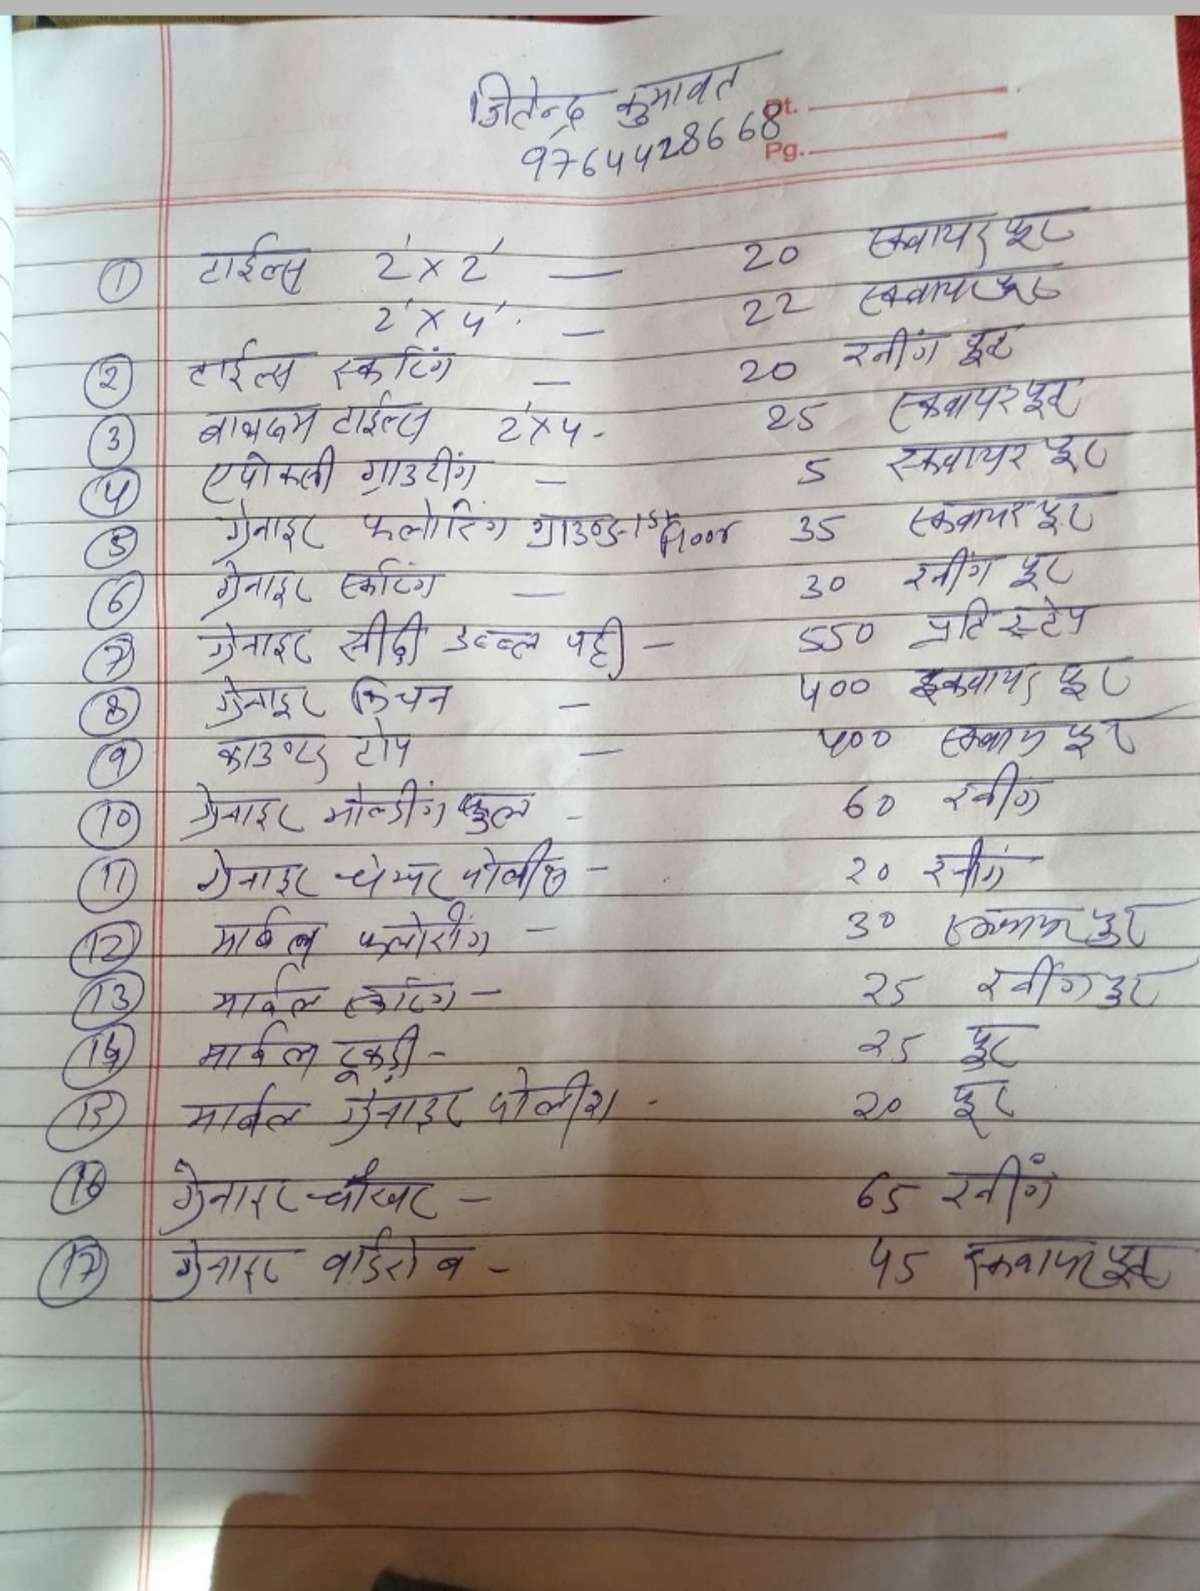 जितेन्द्र कुमावत
Dt.
9764428668
Pg.
1 टाईल्स 2'x2' — 20 स्क्वायर फुट
2'x4' — 22 स्क्वायर फुट
2 टाईल्स स्कटिंग — 20 रनींग फुट
3 बाथरूम टाईल्स 2'x4 - 25 स्क्वायर फुट
4 एपोक्सी ग्राउटींग — 5 स्क्वायर फुट
5 ग्रेनाइट फ्लोरिंग ग्राउण्ड-1st Floor 35 स्क्वायर फुट
6 ग्रेनाइट स्कटिंग — 30 रनींग फुट
7 ग्रेनाइट सीढ़ी डब्ल पट्टी — 550 प्रति स्टेप
8 ग्रेनाइट किचन — 400 स्क्वायर फुट
9 काउण्टर टोप — 400 स्क्वायर फुट
10 ग्रेनाइट मोल्डींग फुल - 60 रनींग
11 ग्रेनाइट चेम्पर पोलीश - 20 रनींग
12 मार्बल फ्लोरींग - 30 स्क्वायर फुट
13 मार्बल स्कटिंग - 25 रनींग फुट
14 मार्बल टूकड़ी - 25 फुट
15 मार्बल ग्रेनाइट पोलीश - 20 फुट
16 ग्रेनाइट चौखट - 65 रनींग
17 ग्रेनाइट वार्डरोब - 45 स्क्वायर फुट